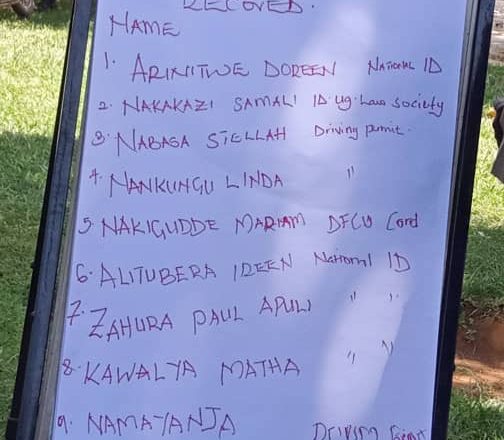 RECOVED.
NAME
1. ARINITWE DOREEN NATIONAL ID
2. NAKAKAZI SAMALI ID Ug. Law Society
3. NABAGA STELLAH Driving permit.
4. NANKUNGU LINDA "
5. NAKIGUDDE MARIAM DFCU Card
6. ALITUBERA IDEEN National ID
7. ZAHURA PAUL APULI " "
8. KAWALYA MATHA " "
9. NAMAYANJA Driving